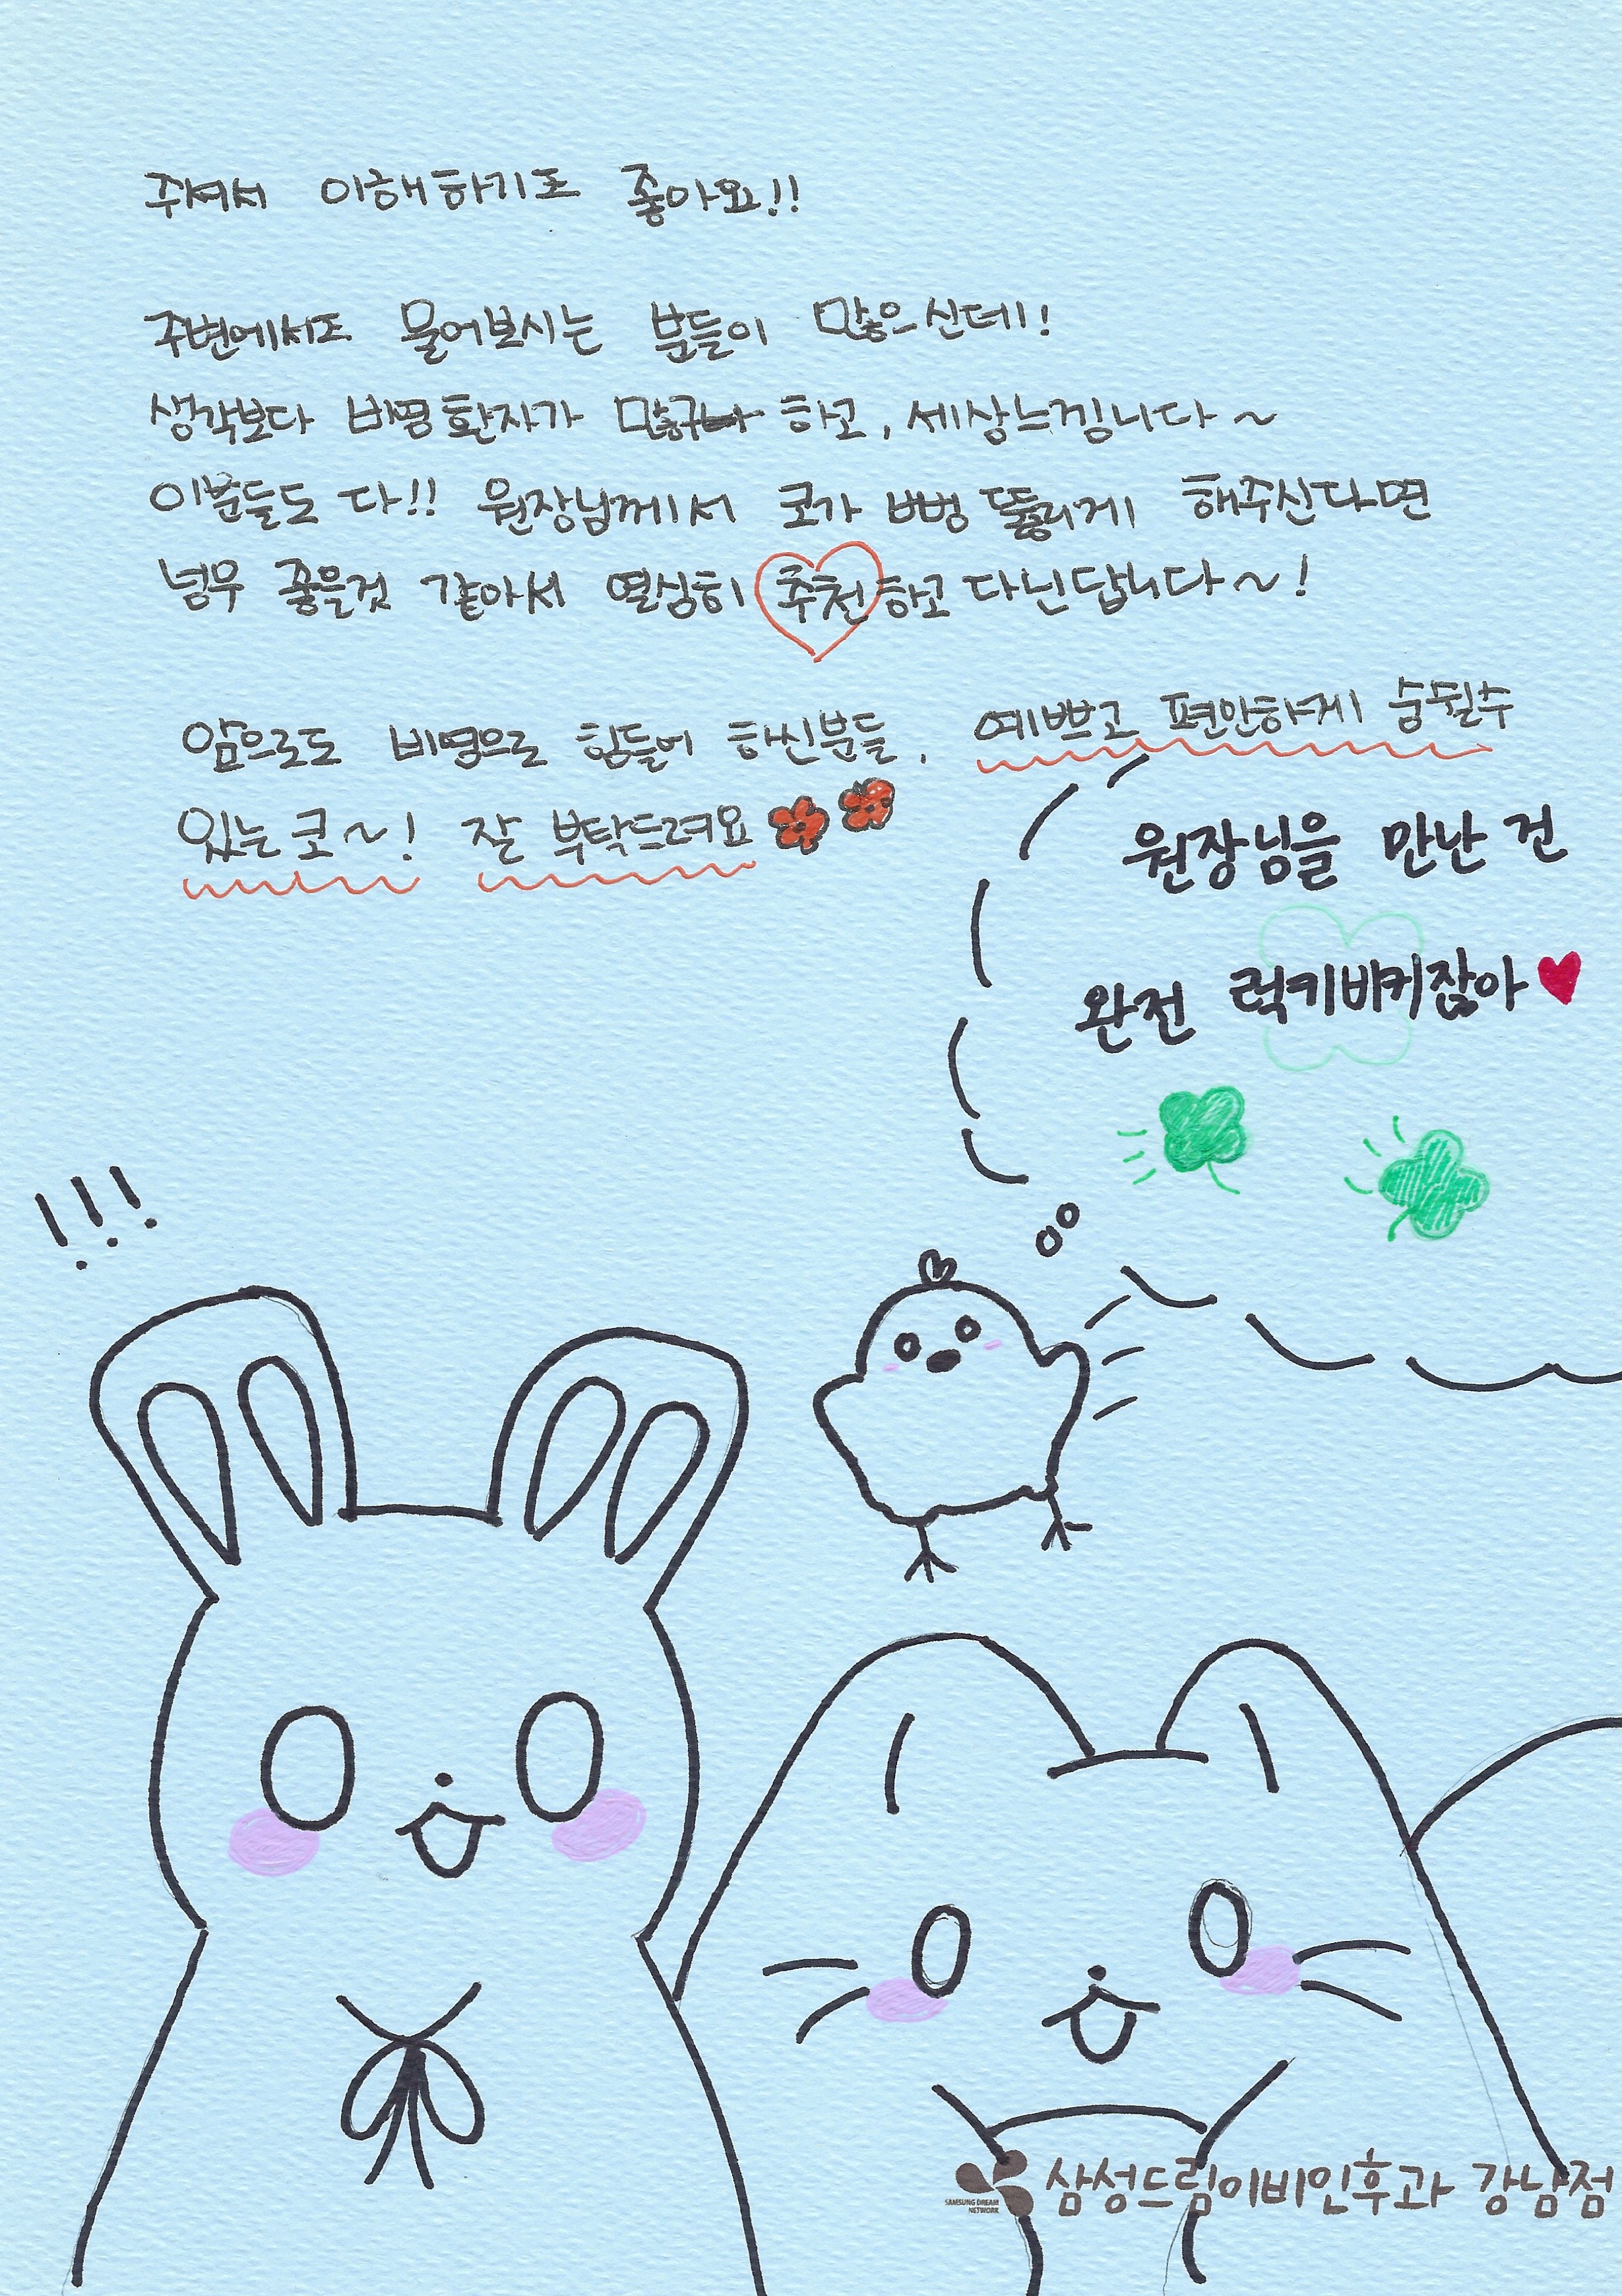 주셔서 이해하기도 좋아요!!
주변에서도 물어보시는 분들이 많으신데!
생각보다 비염환자가 많구나 하고, 세상느낍니다~
이분들도 다!! 원장님께서 코가 뻥 뚫리게 해주신다면
넘우 좋을것 같아서 열심히 추천하고 다닌답니다~!
앞으로도 비염으로 힘들어 하신분들, 예쁘고 편안하게 숨쉴수
있는 코~! 잘 부탁드려요
원장님을 만난 건
완전 럭키비키잖아♥
!!!
삼성드림이비인후과 강남점
SAMSUNG DREAM
NETWORK